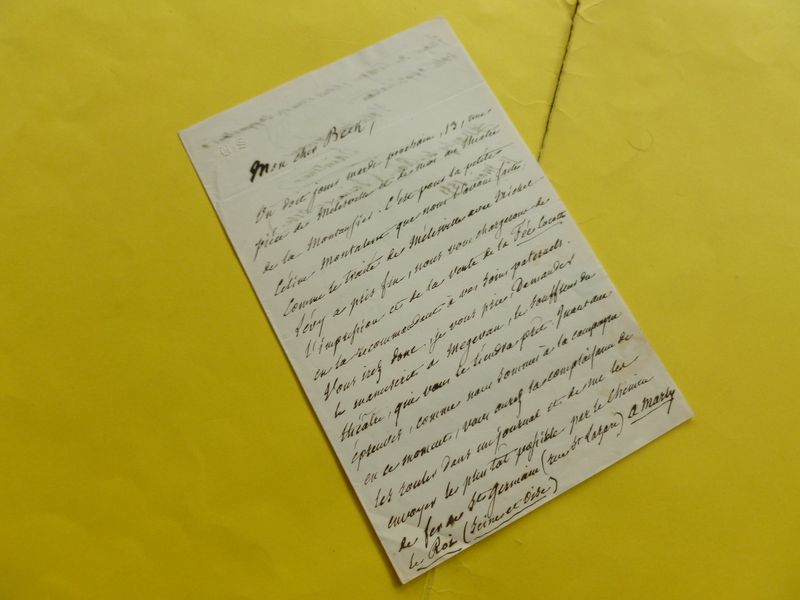 Mon cher Beck,
On doit jouer mardi prochain, 13, une
pièce de Mélesville et de moi au théâtre
de la Montansier. C'est pour la petite
Céline Montaland que nous l'avons faite,
Comme le traité de Mélesville avec Michel
Lévy a pris fin, nous vous chargerons de
l'impression et de la vente de la Fée Cocotte
en la recommandant à vos soins paternels.
Vous irez donc, je vous prie, demander
le manuscrit à Megevan, le souffleur du
théâtre, qui vous le tiendra prêt. Quant aux
épreuves, comme nous sommes à la campagne
en ce moment, vous aurez la complaisance de
les rouler dans un journal et de me les
envoyer le plutôt possible par le chemin
de fer de St Germain (rue St Lazare) à Marly
le Roi (Seine et Oise)